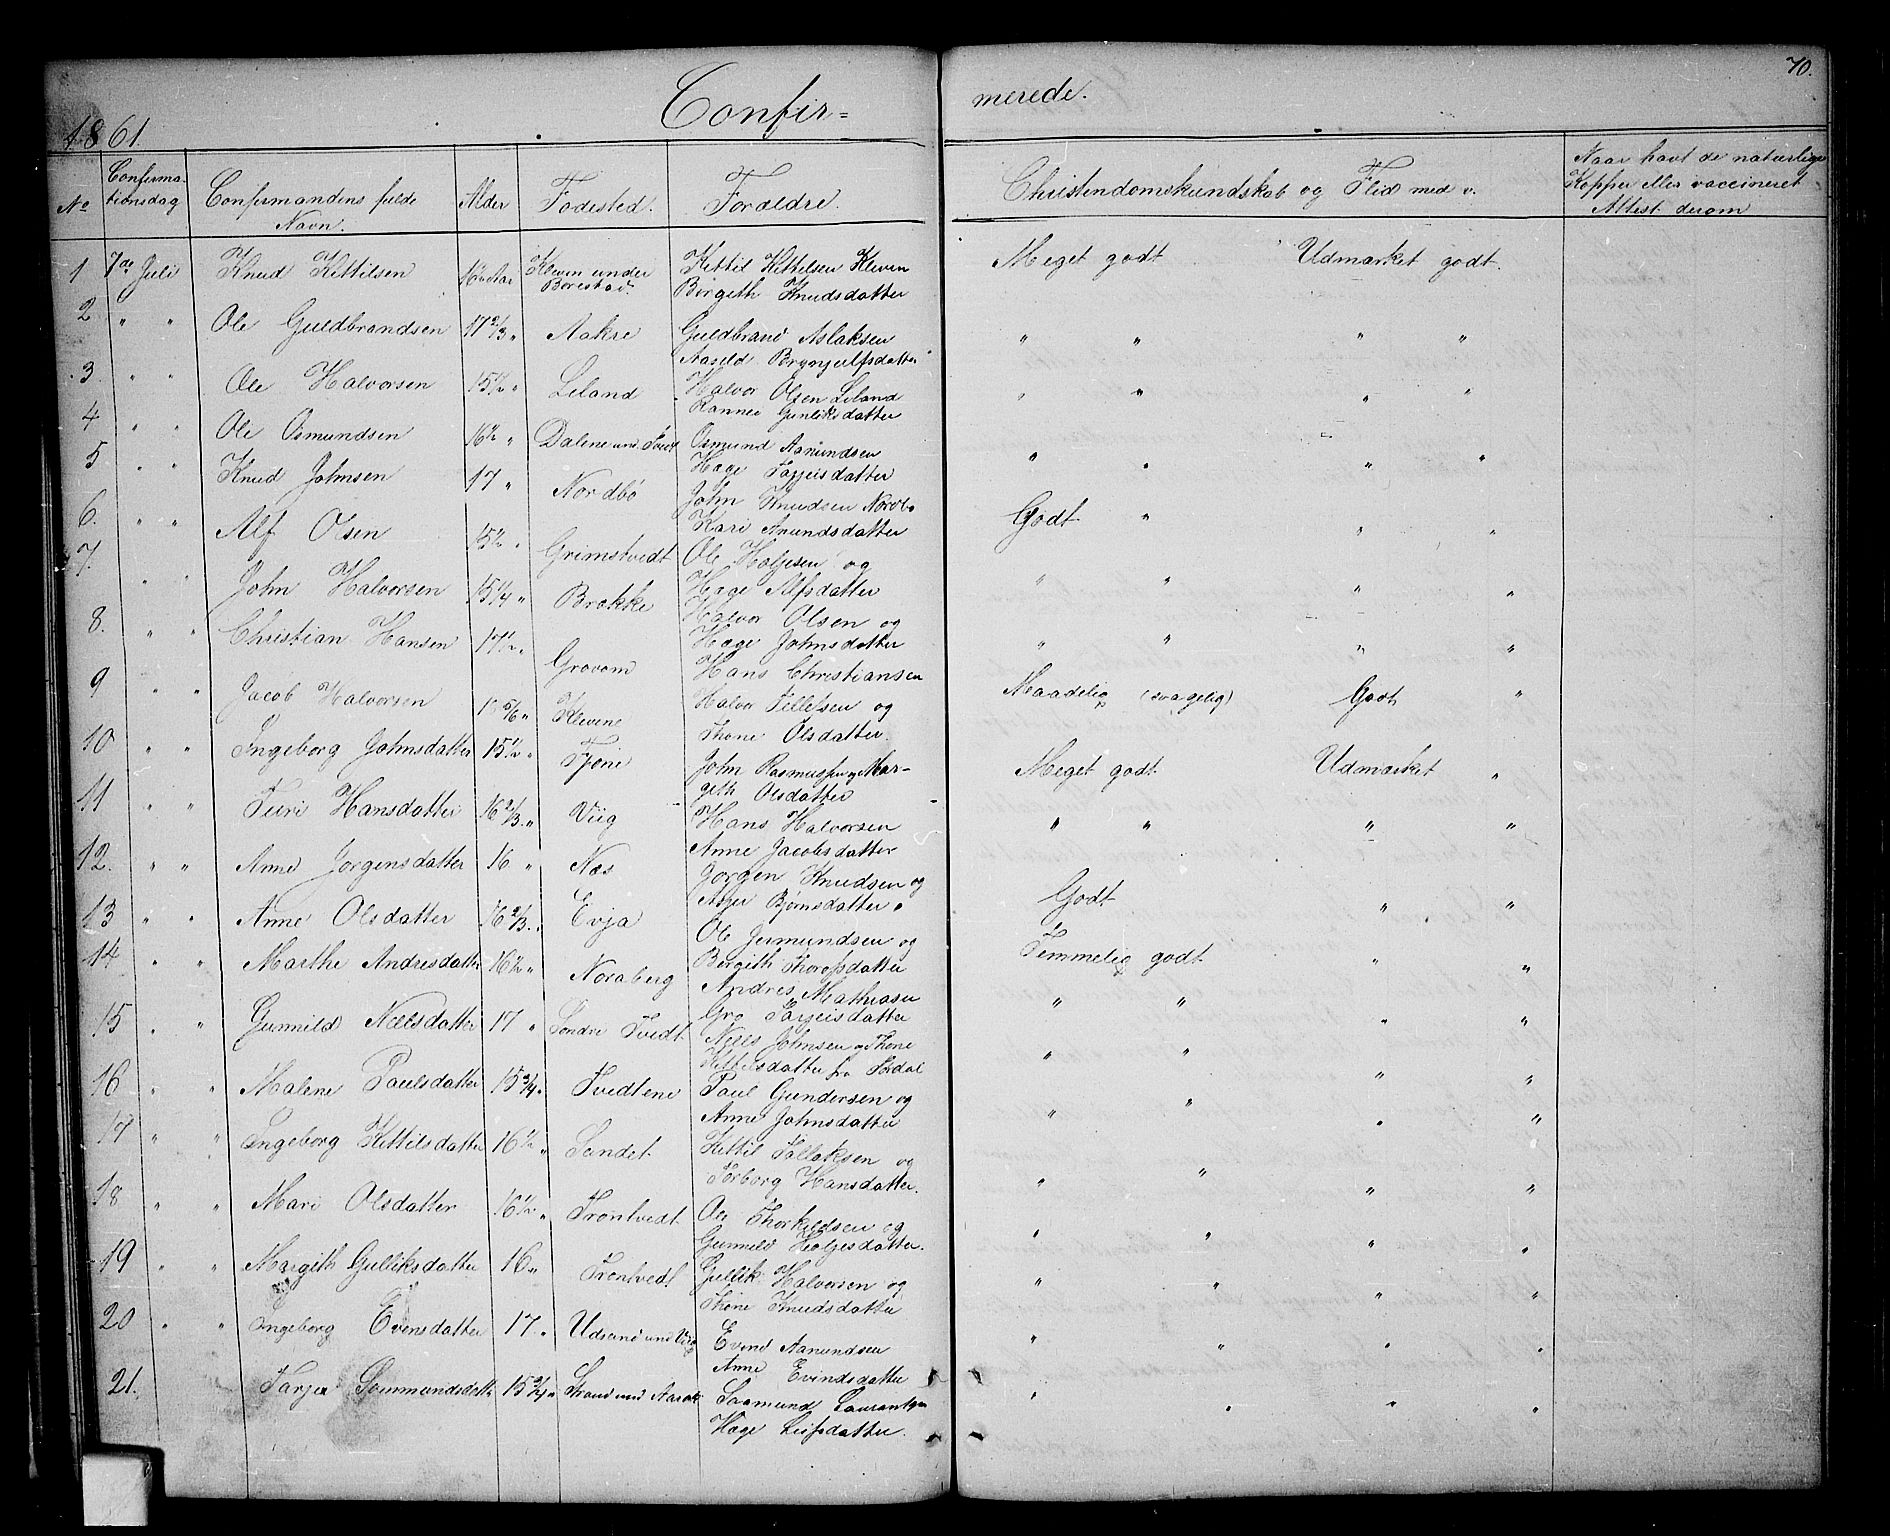 Confir= merede. 70.
1861.
No
Confirma-
tionsdag
Confirmandens fulde
Navn.
Alder
Fødested.
Forældre.
Christendomskundskab og Flid med v.
Naar havt de naturlige
Kopper eller vaccineret
Attest derom
1 7de Juli Knud Kittilsen 16½ Aar Kleven under Kittil Kittelsen Kleven Meget godt Udmærket godt.
Borestad. Borgith Knudsdatter
2 " " Ole Guldbrandsen 17 2/3 " Aakre Guldbrand Aslaksen " " " "
Aasild Brynjulfsdatter
3. " " Ole Halvorsen 15½ " Leland Halvor Olsen Leland " " " "
Rannei Gunliksdatter
4 " " Ole Osmundsen 16½ " Dalene und. Tvedt Osmund Aanundsen " " " "
Hæge Tarjeisdatter
5 " " Knud Johnsen 17 " Nordbö John Knudsen Nordbö Godt " " "
Kari Anundsdatter
6. " " Alf Olsen 15½ " Grimstvedt Ole Holjesen og " " " "
Hæge Alfsdatter
7. " " John Halvorsen 15¼ " Brokke Halvor Olsen og " " " "
Hæge Johnsdatter
8. " " Christian Hansen 17½ " Grovom Hans Christiansen Maadelig (svagelig) Godt "
9 " " Jacob Halvorsen 5/6 " Klevene Halvor Tellefsen og
Thone Olsdatter.
10 " " Ingeborg Johnsdatter 15½ " Tjöne John Rasmussen og Mar- Meget godt Udmærket "
geth Olsdatter
11 " " Turi Hansdatter 16 2/3 " Viig Hans Halvorsen " " " "
Anne Jacobsdatter
12. " " Anne Jörgensdatter 16 " Næs Jörgen Knudsen og Godt " "
Asger Björnsdatter
13 " " Anne Olsdatter 16 2/3 " Evja Ole Jermundsen og Temmelig godt " "
Bergith Thorefsdatter
14 " " Marthe Andresdatter 16½ " Noraberg Andres Mathiasen " " " "
Gro Tarjeisdatter
15 " " Gunnild Nielsdatter 17 " Söndre Tvedt Niels Johnsen og Thone " " " "
Kittilsdatter fra Sordal
16 " " Malene Paulsdatter 15 3/4 " Tvedtene Paul Gundersen og " " " "
Anne Johnsdatter
17 " " Ingeborg Kittilsdatter 16½ " Sandet Kittil Tallaksen og " " " "
Torborg Hansdatter.
18 " " Mari Olsdatter 16½ " Tröntvedt Ole Thorkildsen og " " " "
Gunnild Holjesdatter.
19 " " Margith Gulliksdatter 16 " Tröntvedt Gullik Halvorsen og " " " "
Thone Knudsdatter
20 " " Ingeborg Evensdatter 17 " Udsand und Viig Evend Aanundsen " " " "
Anne Evindsdatter
21. Tarjer Sommundsdatt 15 3/4 " Strand und Saamund Laurantsen " " " "
Hæge Leifsdatter.